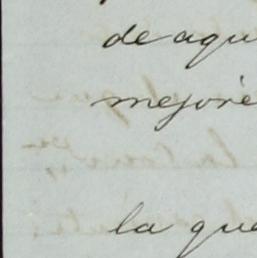 de aqu
mejore
la que